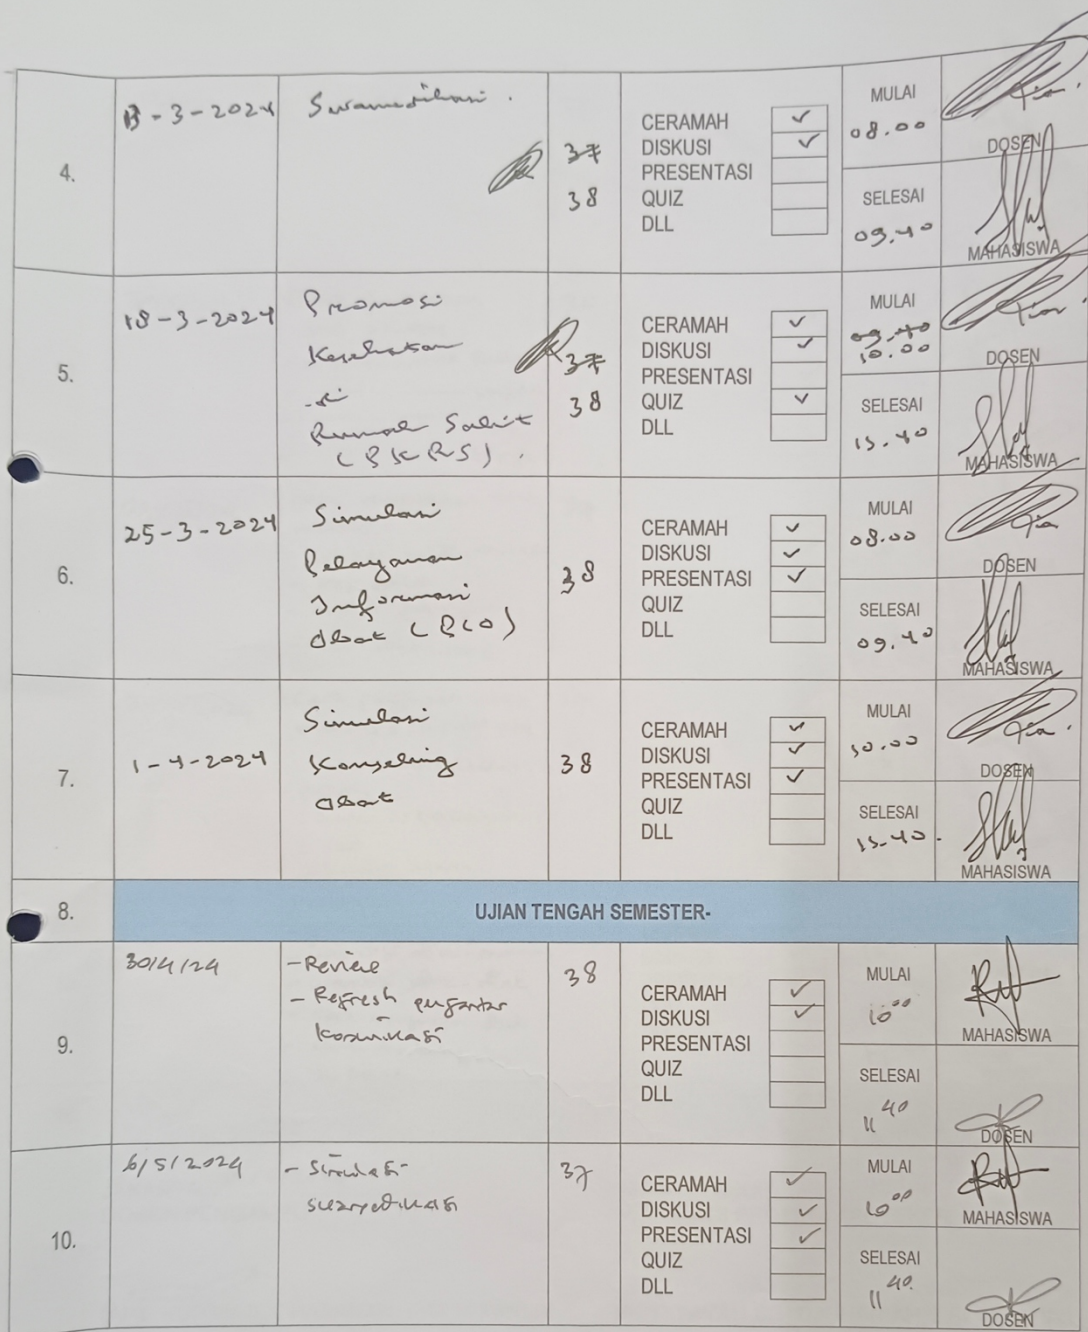 4.
13-3-2024
Swamedikasi.
37
38
CERAMAH ✓
DISKUSI ✓
PRESENTASI
QUIZ
DLL
MULAI
08.00
SELESAI
09.40
DOSEN
MAHASISWA
5.
18-3-2024
Promosi
Kesehatan
di
Rumah Sakit
(PKRS).
37
38
CERAMAH ✓
DISKUSI ✓
PRESENTASI
QUIZ ✓
DLL
MULAI
09.40
10.00
SELESAI
DOSEN
MAHASISWA
6.
25-3-2024
Simulasi
Pelayanan
Informasi
Obat (PIO)
38
CERAMAH ✓
DISKUSI ✓
PRESENTASI ✓
QUIZ
DLL
MULAI
08.00
SELESAI
09.40
DOSEN
MAHASISWA
7.
1-4-2024
Simulasi
Konseling
Obat
38
CERAMAH ✓
DISKUSI ✓
PRESENTASI ✓
QUIZ
DLL
MULAI
10.00
SELESAI
DOSEN
MAHASISWA
8.
UJIAN TENGAH SEMESTER-
9.
30/4/24
- Review
- Refresh pengantar
komunikasi
38
CERAMAH ✓
DISKUSI ✓
PRESENTASI
QUIZ
DLL
MULAI
10 00
SELESAI
11 40
MAHASISWA
DOSEN
10.
6/5/2024
- Simulasi
swamedikasi
37
CERAMAH ✓
DISKUSI ✓
PRESENTASI ✓
QUIZ
DLL
MULAI
10 00
SELESAI
11 40
MAHASISWA
DOSEN